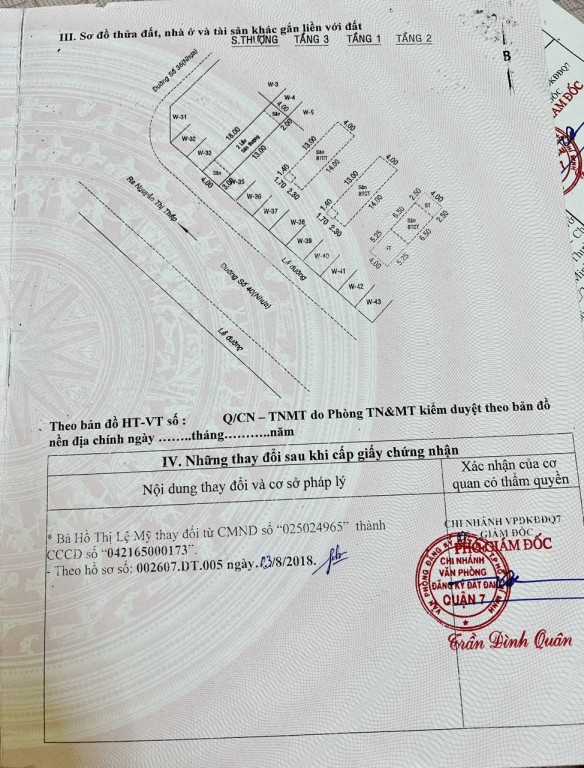 III. Sơ đồ thửa đất, nhà ở và tài sản khác gắn liền với đất
S.THƯỢNG TẦNG 3 TẦNG 1 TẦNG 2
B
Đường Số 36(Nhựa)
W-3
W-4
W-5
4.00
Sân
2.00
W-31
W-32
W-33
18.00
2 Lầu
Sân thượng
13.00
Sân
4.00
W-35
W-36
W-37
W-38
W-39
W-40
W-41
W-42
W-43
13.00
4.00
Sàn
BTCT
14.00
1.40
1.70
2.30
13.00
4.00
Sàn
BTCT
14.00
1.40
1.70
2.30
2.50
4.00
6.50
ST
2.50
Sàn
BTCT
6.50
5.25
4.00
5.25
Ra Nguyễn Thị Thập
Đường Số 40(Nhựa)
Lề đường
Lề đường
Theo bản đồ HT-VT số : Q/CN – TNMT do Phòng TN&MT kiểm duyệt theo bản đồ
nền địa chính ngày ........tháng...........năm
IV. Những thay đổi sau khi cấp giấy chứng nhận
Nội dung thay đổi và cơ sở pháp lý
Xác nhận của cơ
quan có thẩm quyền
* Bà Hồ Thị Lệ Mỹ thay đổi từ CMND số “025024965” thành
CCCD số “042165000173”.
- Theo hồ sơ số: 002607.DT.005 ngày.03/8/2018.
CHI NHÁNH VPĐKĐĐQ7
GIÁM ĐỐC
PHÓ GIÁM ĐỐC
CHI NHÁNH
VĂN PHÒNG
ĐĂNG KÝ ĐẤT ĐAI
QUẬN 7
Trần Đình Quân
ĐKĐĐQ7
ĐỐC
IÁM ĐỐC